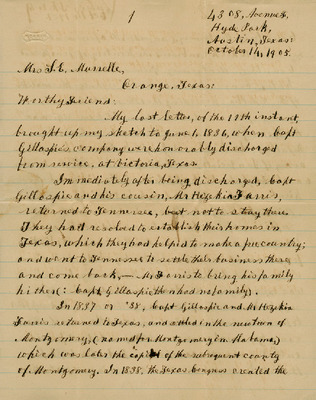 1
4308, Avenue F,
Hyde Park,
Austin, Texas:
October 14, 1905.
Mrs. S. E. Murrelle,
Orange, Texas:
Worthy Friend:
My last letter, of the 11th instant,
brought up my sketch to June 1, 1836, when Capt
Gillaspie's company were honorably discharged
from service, at Victoria, Texas.
Immediately after being discharged, Capt
Gillaspie and his cousin, Mr Hezekia Farris,
returned to Tennessee, but not to stay there.
They had resolved to establish their homes in
Texas, which they had helped to make a free country;
and went to Tennessee to settle their business there
and come back,— Mr Farris to bring his family
hither (: Capt Gillaspie then had no family).
In 1837 or '38, Capt Gillaspie and Mr Hezekia
Farris returned to Texas, and settled in the new town of
Montgomery, (named for Montgomery in Alabama,)
which was later the capital of the subsequent county
of Montgomery. In 1838, the Texas Congress created the